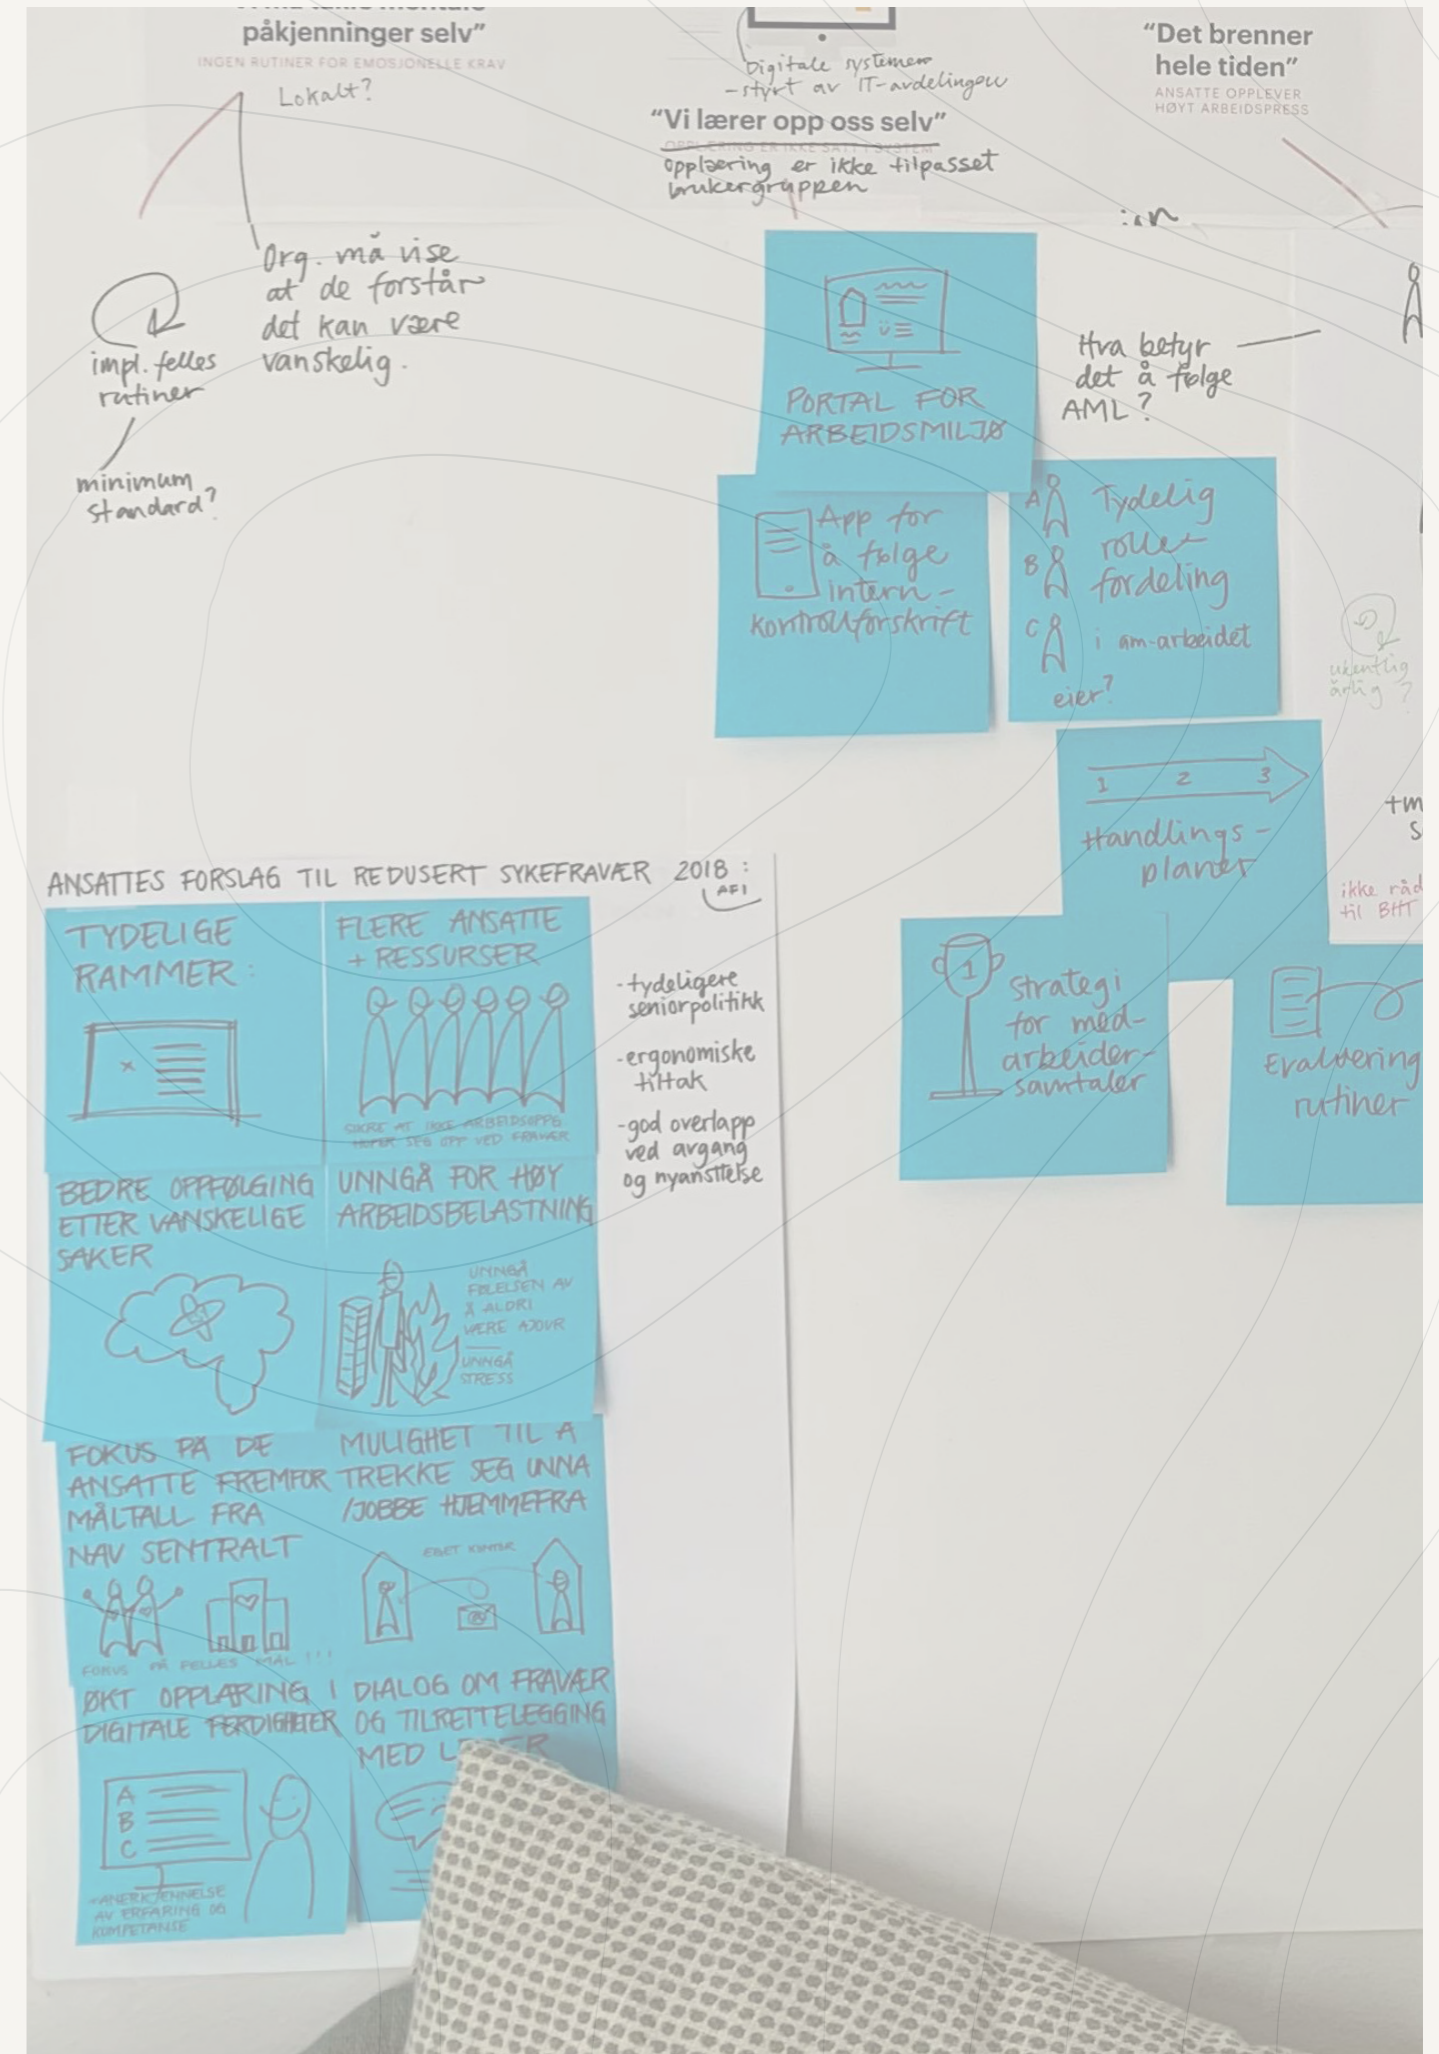 påkjenninger selv”
INGEN RUTINER FOR EMOSJONELLE KRAV
Lokalt?
Digitale systemer
- styrt av IT-avdelingen
“Vi lærer opp oss selv”
OPPLÆRING ER IKKE SATT I SYSTEM
opplæring er ikke tilpasset
brukergruppen
“Det brenner
hele tiden”
ANSATTE OPPLEVER
HØYT ARBEIDSPRESS
Org. må vise
at de forstår
det kan være
vanskelig.
impl. felles
rutiner
minimum
standard?
PORTAL FOR
ARBEIDSMILJØ
Hva betyr
det å følge
AML?
App for
å følge
intern-
kontrollforskrift
A
B
C
Tydelig
rolle
fordeling
i am-arbeidet
eier?
ukentlig
årlig?
1 2 3
Handlings-
planer
ikke råd
til BHT
1
Strategi
for med-
arbeider-
samtaler
Evaluering
rutiner
ANSATTES FORSLAG TIL REDUSERT SYKEFRAVÆR 2018:
AFI
TYDELIGE
RAMMER:
FLERE ANSATTE
+ RESSURSER
SIKRE AT IKKE ARBEIDSOPPG
HOPER SEG OPP VED FRAVÆR
-tydeligere
seniorpolitikk
-ergonomiske
tiltak
-god overlapp
ved avgang
og nyansttelse
BEDRE OPPFØLGING
ETTER VANSKELIGE
SAKER
UNNGÅ FOR HØY
ARBEIDSBELASTNING
UNNGÅ
FØLELSEN AV
Å ALDRI
VÆRE AJOUR
UNNGÅ
STRESS
FOKUS PÅ DE
ANSATTE FREMFOR
MÅLTALL FRA
NAV SENTRALT
FOKUS PÅ FELLES MÅL !!!
MULIGHET TIL Å
TREKKE SEG UNNA
/JOBBE HJEMMEFRA
EGET KONTOR
ØKT OPPLÆRING I
DIGITALE FERDIGHETER
A
B
C
+ANERKJENNELSE
AV ERFARING OG
KOMPETANSE
DIALOG OM FRAVÆR
OG TILRETTELEGGING
MED LEDER